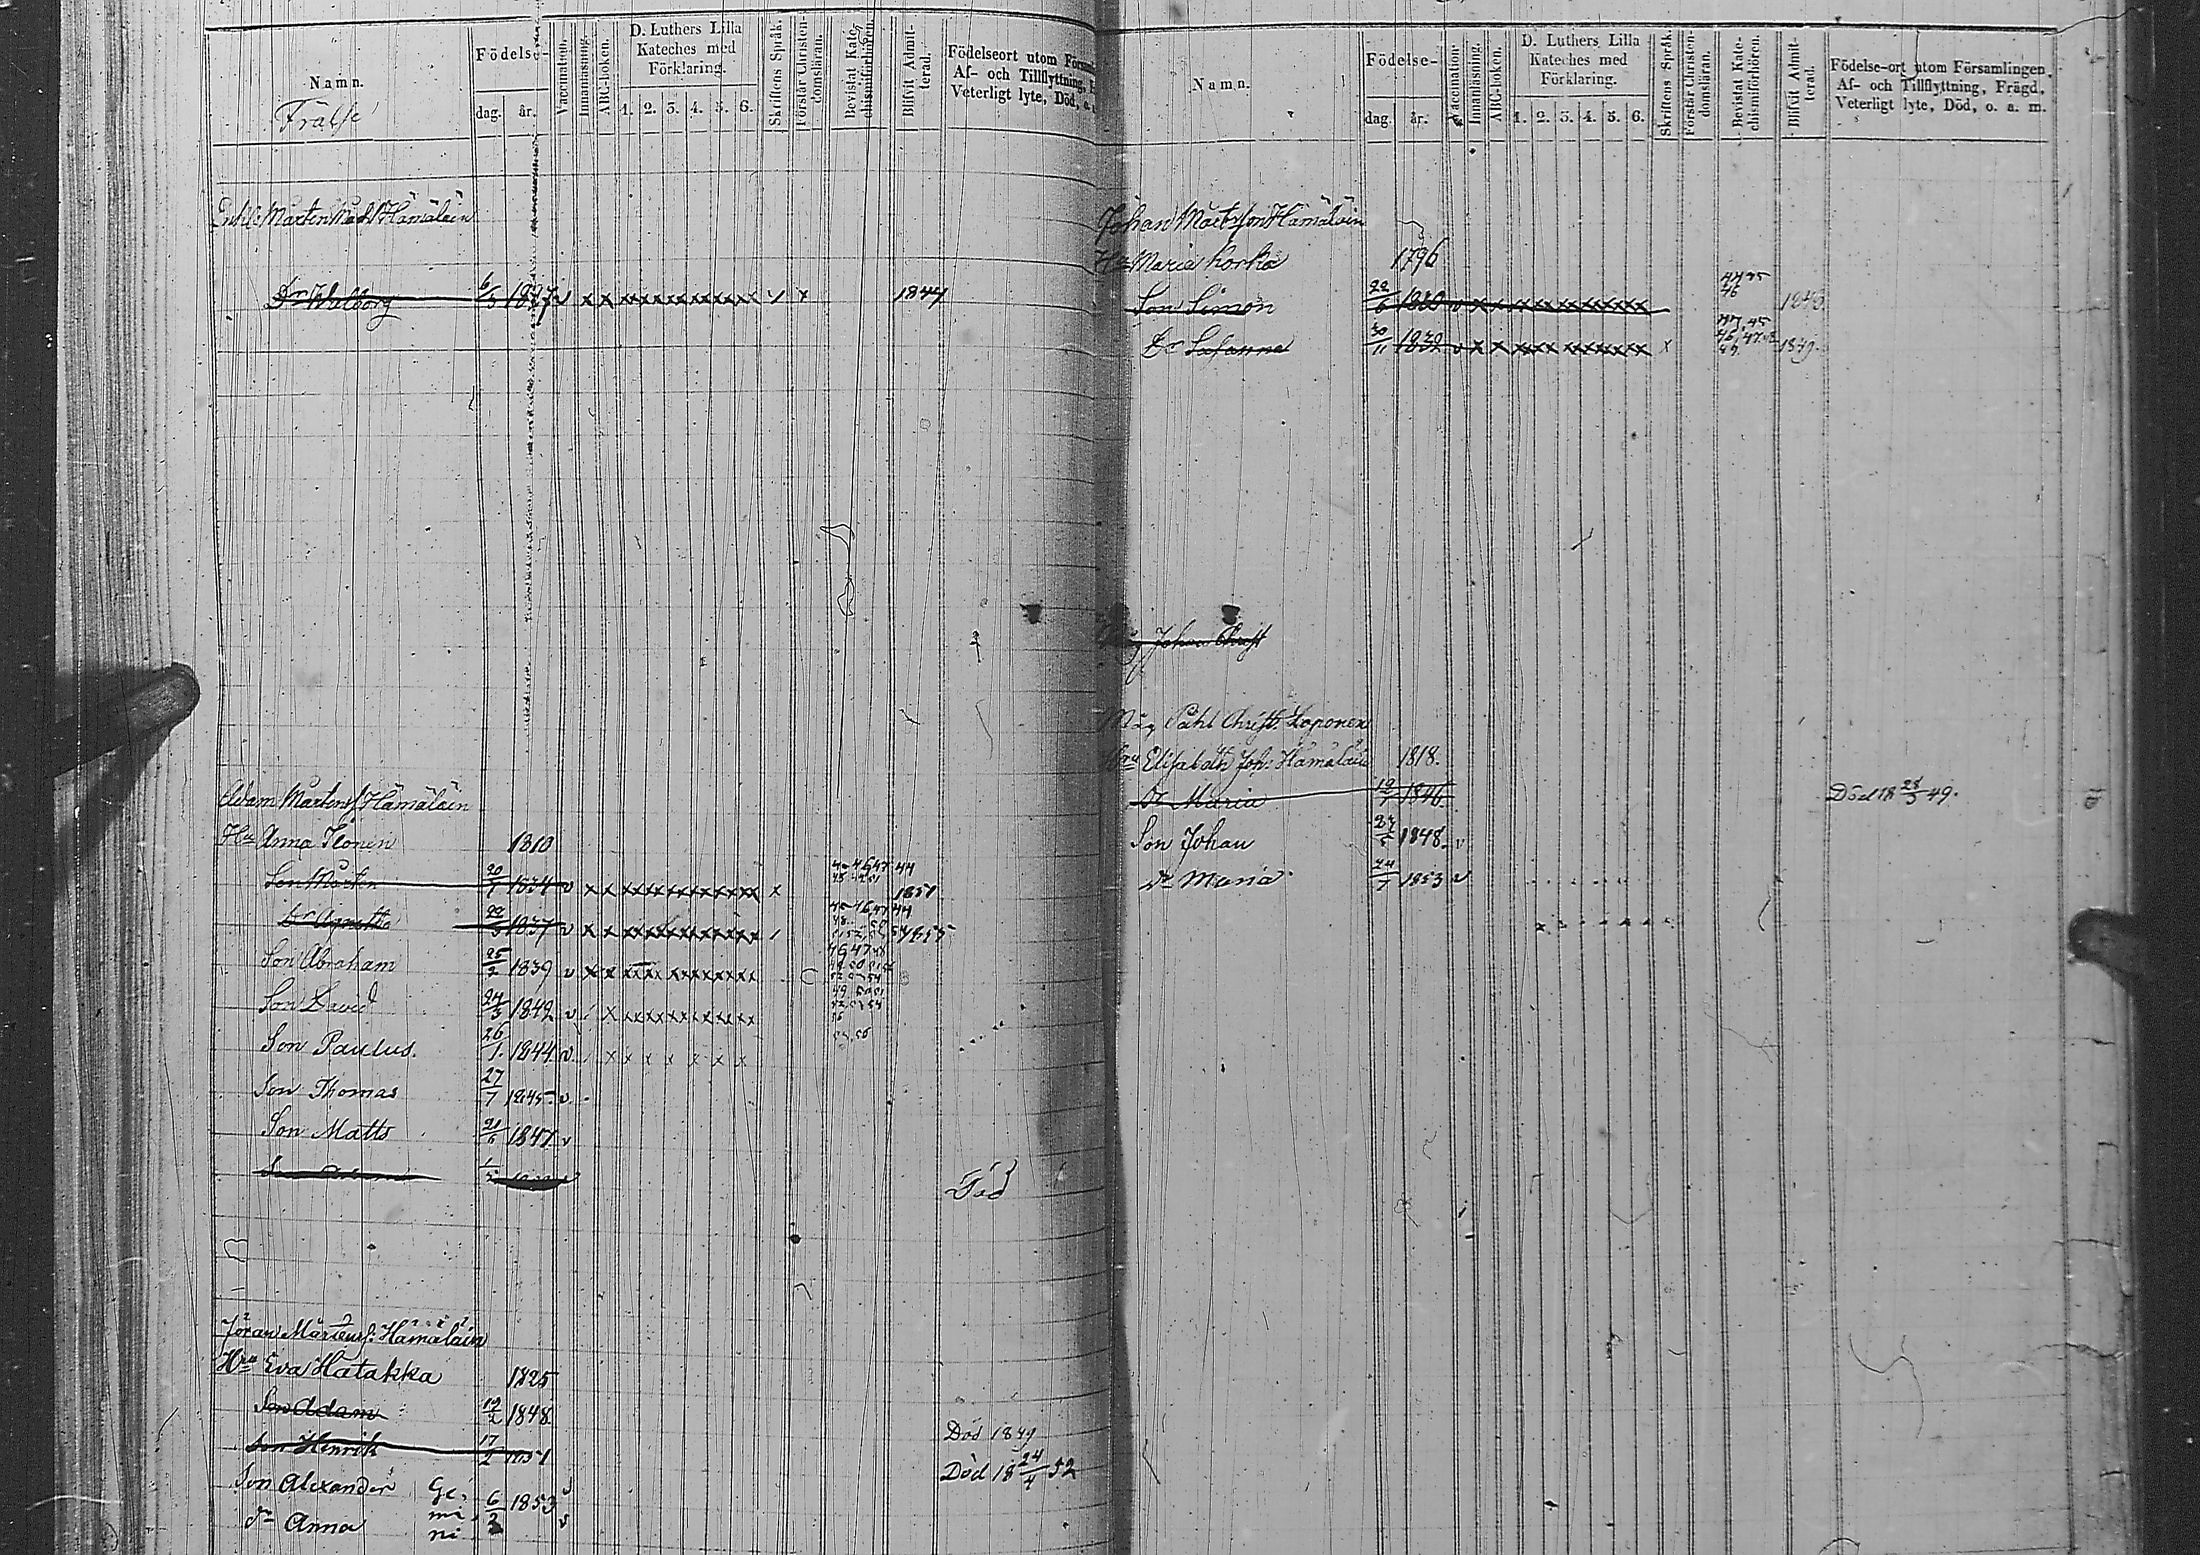 Namn.
Frälse
Födelse-
dag.
år.
Vaccination.
Innanläsning.
ABC-boken.
D. Luthers Lilla
Kateches med
Förklaring.
1. 2. 3. 4. 5. 6.
Skriftens Språk.
Förstår Christen-
domsläran.
Bevistat Kate-
chismiförhören.
Blifvit Admit-
terad.
Födelseort utom
Af- och Tillflyttning,
Veterligt lyte, Död, o. a.
Mårten Hämäläin
Dr Walborg 6/3 1827 v x x xxxxxxxxxxxx x 1844
Adam Mårtens Hämäläin
Hu Anna Ilonen 1810
Son Mårten 20/1 1834 v x x xxxxxxxxxxxx x 1851
Dr Agnetha 1837 v x x xxxxxxxxxxxx
Son Abraham 25/2 1839 v x x xxxxxxxxxxxx
Son David 24/3 1842 v x xxxxxxxxxxx
Son Paulus. 26/1. 1844 v x x x x x x x
Son Thomas 27/7 1845 v
Son Matts 21/6 1847 v
Son Död
Jöran Mårtens: Hämäläin
Hru Eva Hatakka 1825
Son Adam 19/2 1848 Död 1849
Son Henrik 17/2 1851 Död 18 24/4 52
Son Alexander Ge- 6/2 1853 v
mi-
Dr Anna ni v
Namn.
Födelse-
dag.
år.
Vaccination.
Innanläsning.
ABC-boken.
D. Luthers Lilla
Kateches med
Förklaring.
1. 2. 3. 4. 5. 6.
Skriftens Språk.
Förstår Christen-
domsläran.
Bevistat Kate-
chismiförhören.
Blifvit Admit-
terad.
Födelse-ort utom Församlingen,
Af- och Tillflyttning, Frägd,
Veterligt lyte, Död, o. a. m.
Johan Mårtensson Hämäläin
Hu Maria Korka 1796
Son Simon 22/6 1830 v x x xxxxxxxxxxx 46 1846
Dr Susanna 30/11 1832 v x x xxxxxxxxxxx x 1849.
Måg Johan Christ
Måg Påhl Christ. Loponen
Hru Elisabeth Joh: Hämäläin 1818.
Dr Maria 1846. Död 18 49.
Son Johan 1848. v
Dr Maria 24/7 1853 v